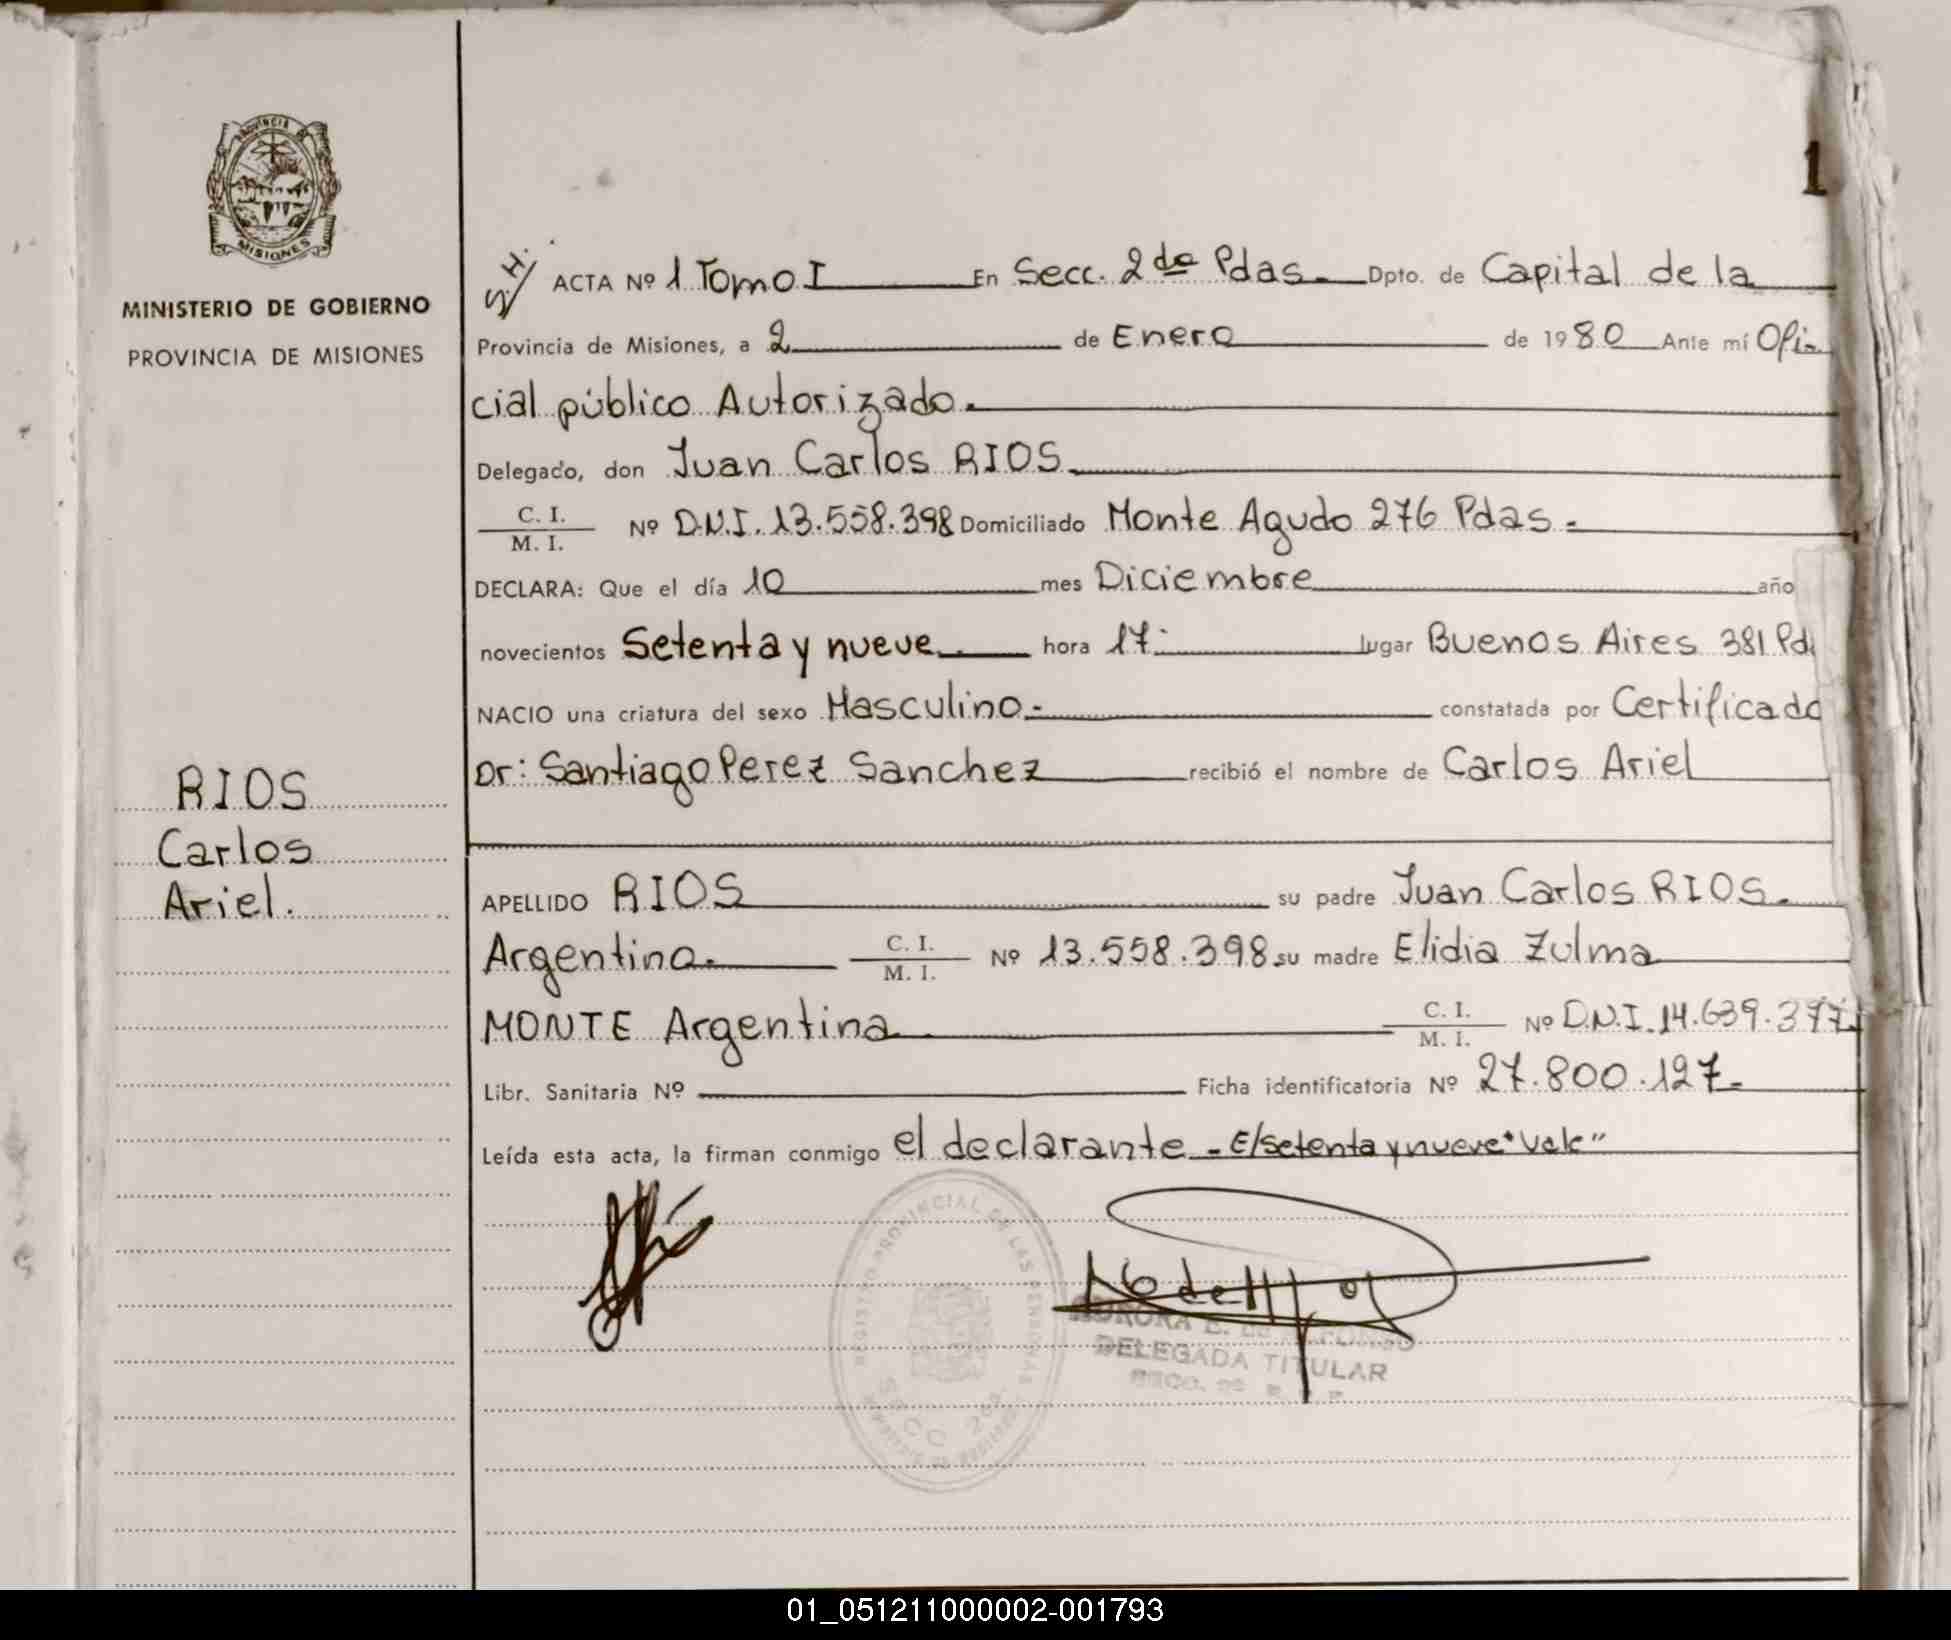 PROVINCIA DE
MISIONES
MINISTERIO DE GOBIERNO
PROVINCIA DE MISIONES
RIOS
Carlos
Ariel.
1
S.H. ACTA Nº 1 Tomo I En Secc. 2da Pdas. Dpto. de Capital de la
Provincia de Misiones, a 2 de Enero de 1980 Ante mí Ofi-
cial público Autorizado.
Delegado, don Juan Carlos RIOS.
C. I.
M. I. Nº D.N.I. 13.558.398 Domiciliado Monte Agudo 276 Pdas.-
DECLARA: Que el día 10 mes Diciembre año
novecientos Setenta y nueve hora 17: lugar Buenos Aires 381 Pd
NACIO una criatura del sexo Masculino.- constatada por Certificado
Dr: Santiago Perez Sanchez recibió el nombre de Carlos Ariel
APELLIDO RIOS su padre Juan Carlos RIOS.
Argentino. C. I.
M. I. Nº 13.558.398 su madre Elidia Zulma
MONTE Argentina C. I.
M. I. Nº D.N.I. 14.639.377
Libr. Sanitaria Nº Ficha identificatoria Nº 27.800.127.-
Leída esta acta, la firman conmigo el declarante - E/setenta y nueve "Vale"
REGISTRO PROVINCIAL DE LAS PERSONAS
SECC 2da
AURORA E. DE
DELEGADA TITULAR
SECC. 2a
01_051211000002-001793